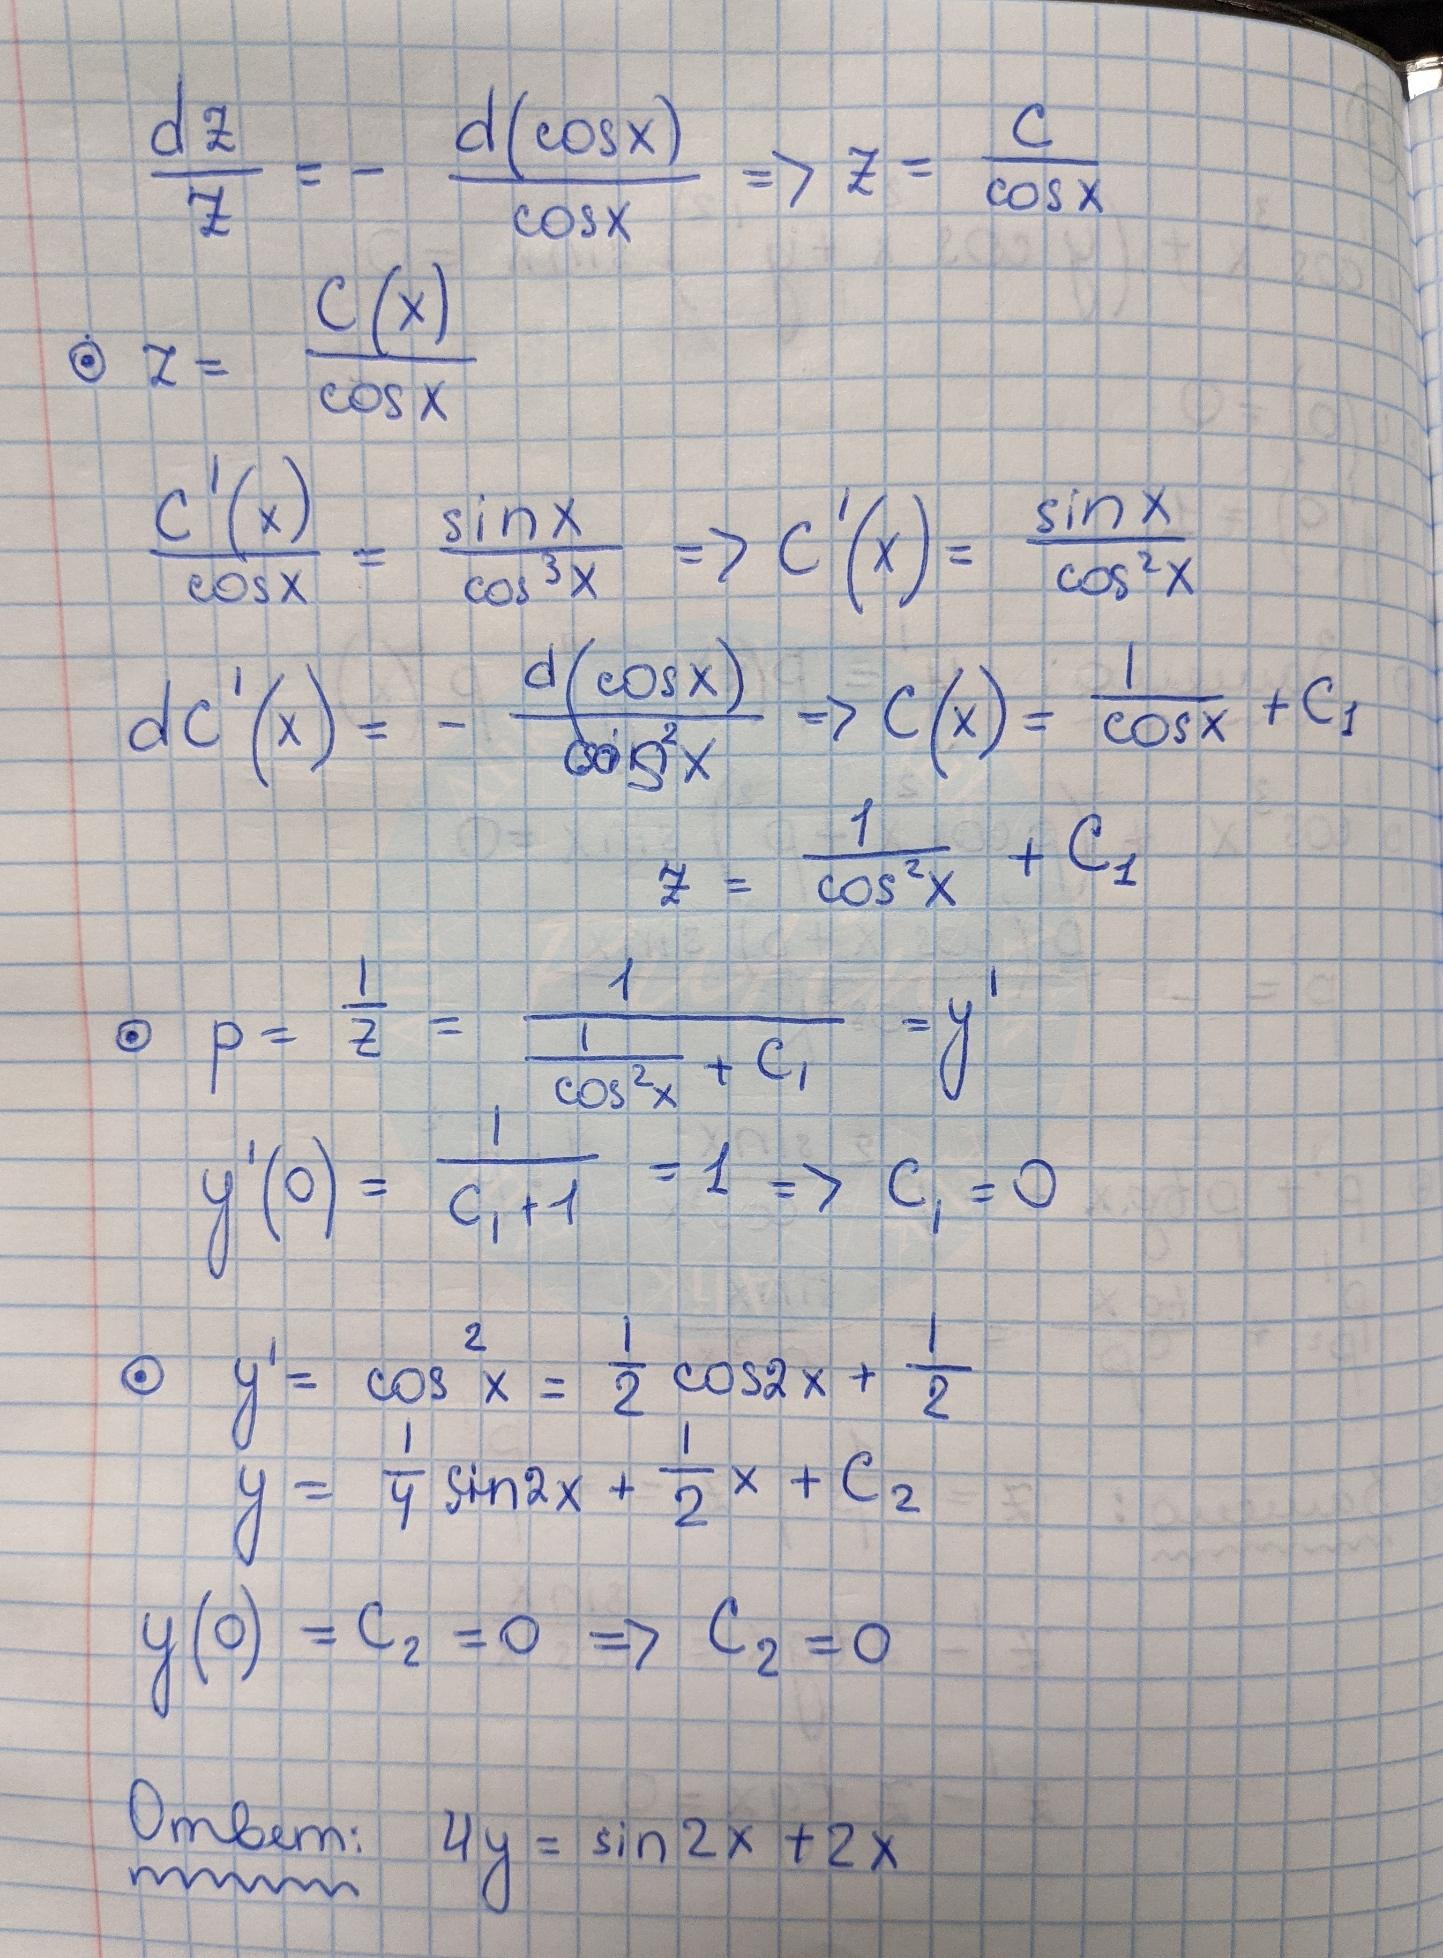 dz/z = - d(cosx)/cosx => z = C/cosx
⊙ z = C(x)/cosx
C'(x)/cosx = sinx/cos³x => C'(x) = sinx/cos²x
dC'(x) = - d(cosx)/cos²x => C(x) = 1/cosx + C₁
z = 1/cos²x + C₁
⊙ p = 1/z = 1/(1/cos²x + C₁) = y'
y'(0) = 1/(C₁+1) = 1 => C₁ = 0
⊙ y' = cos²x = 1/2 cos2x + 1/2
y = 1/4 sin2x + 1/2 x + C₂
y(0) = C₂ = 0 => C₂ = 0
Ответ: 4y = sin2x + 2x